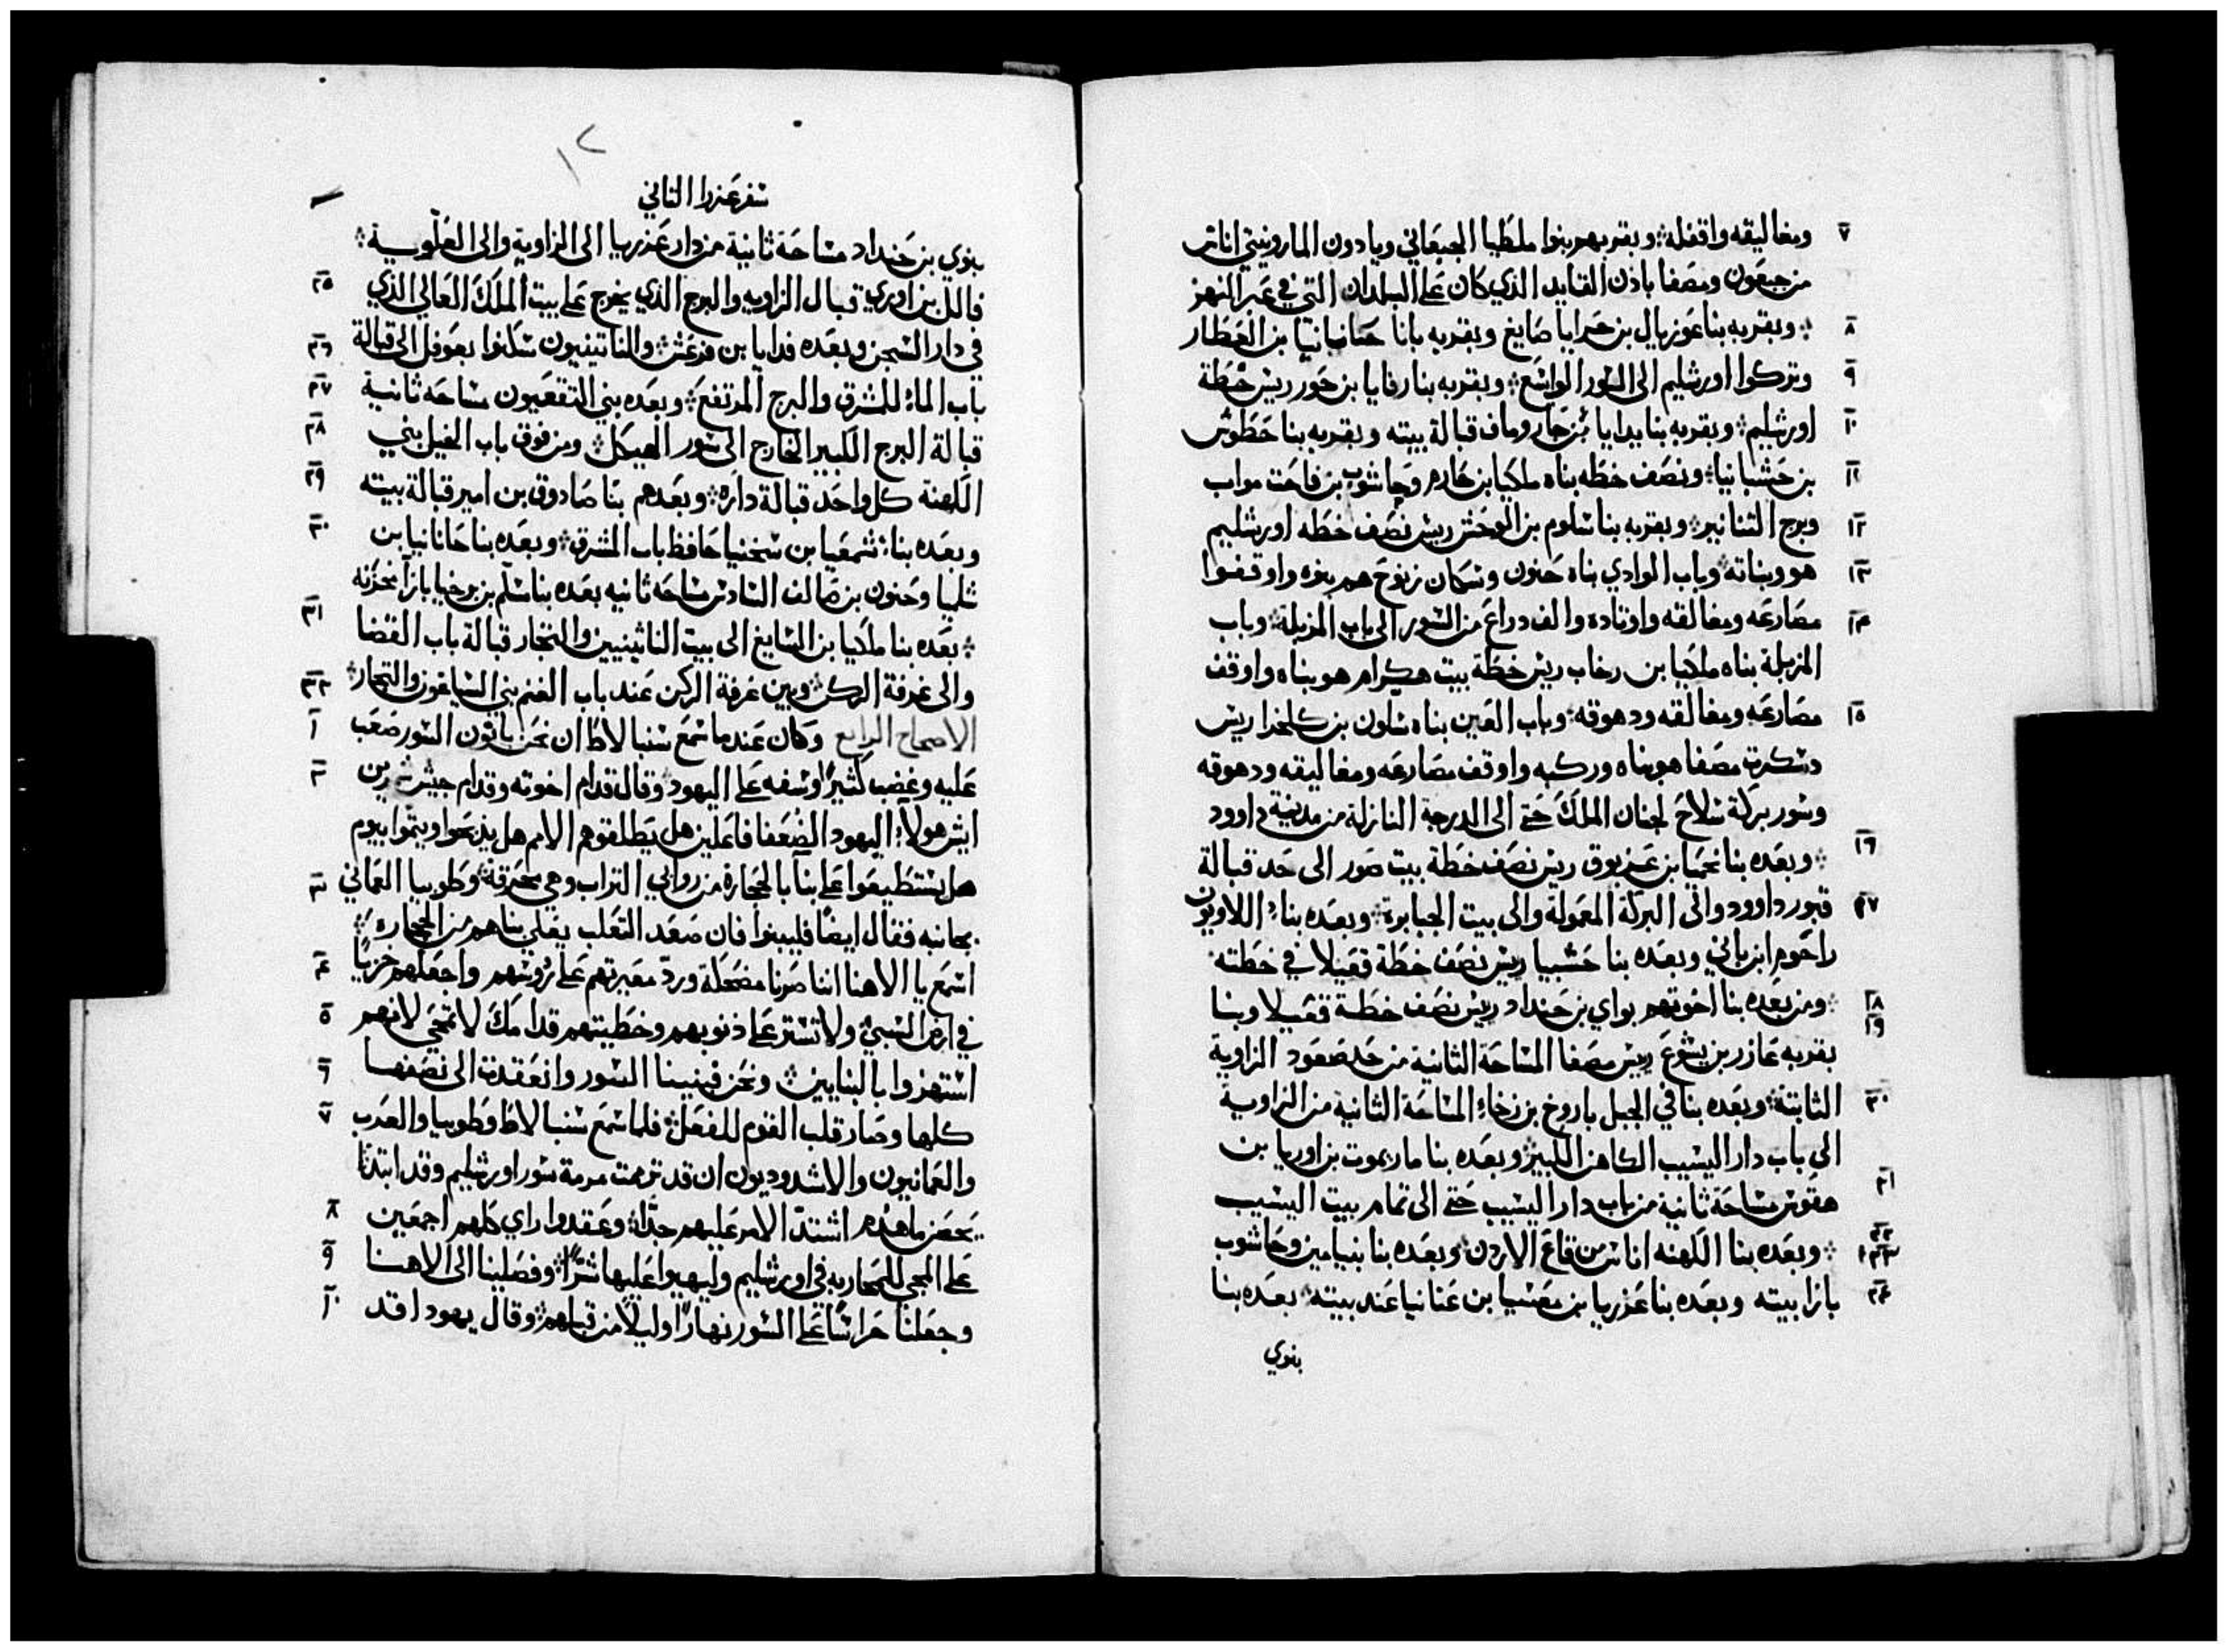 ٧ ومغاليقه واقفله؛ وبقربهم بنوا ملطيا الجبعاني ويادون الماروننتي اناس
من جبعون ومصفا باذن القايد الذي كان على البلدان التي في عبر النهر
٨ وبقربه بنا عوزيال بن حرايا صايغ وبقربه بانا حنانيا بن العطار
٩ وتركوا اورشليم الى السور الواسع؛ وبقربه بنا رفايا بن حور ريس خطة
١٠ اورشليم؛ وبقربه بنا يدايا بن حاروماف قبالة بيته وبقربه بنا حطوش
١١ بن حشبانيا؛ ونصف خطه بناه ملكيا بن حارم وحاشوب بن فاحت مواب
١٢ وبرج التنانير؛ وبقربه بنا سلوم بن الوحش ريس نصف خطه اورشليم
١٣ هو وبناته؛ وباب الوادي بناه حنون وسكان زنوح هم بنوه واوقفوا
١٤ مصارعه ومغالقه واوتاده والف دراع من السور الى باب المزبلة؛ وباب
المزبلة بناه ملكيا بن رخاب ريس خطة بيت هكرام هو بناه واوقف
١٥ مصارعه ومغالقه ودهوقه؛ وباب العين بناه سلون بن كلخدا ريس
دسكرة مصفا هو بناه وركبه واوقف مصارعه ومغاليقه ودهوقه
وسور بركة سلاح لجنان الملك حتى الى الدرجة النازلة من مدينة داوود
١٦ وبعده بنا نحميا بن عزبوق ريس نصف خطة بيت صور الى حد قبالة
١٧ قبور داوود والى البركة المعمولة والى بيت الجبابرة؛ وبعده بناء اللاويون
راحوم ابن باني وبعده بنا حشبيا ريس نصف خطة قعيلا في خطته
١٨ ومن بعده بنا اخوتهم بواي بن حنداد ريس نصف خطة قعيلا وبنا
١٩ بقربه عازر بن يشوع ريس مصفا المساحة الثانية من حد صعود الزاوية
٢٠ الثابتة؛ وبعده بنا في الجبل باروخ بن زخاء المساحة الثانية من الزاوية
الى باب دار اليشيب الكاهن الكبير وبعده بنا ماريموت بن اوريا بن
٢١ هقوس مساحة ثانية من باب دار اليشيب حتى الى تمام بيت اليشيب
٢٢ ٢٣ وبعده بنا الكهنه اناس من قاع الاردن وبعده بنا بنيامين وحاشوب
٢٤ بازا بيته وبعده بنا عزريا بن معسيا بن عنانيا عند بيته بعده بنا
بنوي
١٢
سفر عزرا الثاني
بنوي بن حنداد مساحة ثانية من دار عزريا الى الزاوية والى العلوية
٢٥ فالل بن اوزي قبال الزاويه والبرج الذي يخرج على بيت الملك العالي الذي
٢٦ في دار السجن وبعده فدايا بن فرعش؛ والناتينيون سكنوا بعوفل الى قبالة
٢٧ باب الماء للمشرق والبرج المرتفع؛ وبعده بني التقعيون مساحه ثانية
٢٨ قبالة البرج الكبير الخارج الى سور الهيكل؛ ومن فوق باب الخيل بني
٢٩ الكهنة كل واحد قبالة داره؛ وبعدهم بنا صادوق بن امير قبالة بيته
٣٠ وبعده بناء شمعيا بن سخنيا حافظ باب المشرق؛ وبعده بنا حانانيا بن
شلميا وحنون بن صالف السادس مساحه ثانيه بعده بنا مسلم بن برخيا بازا مخزنه
٣١ بعده بنا ملكيا بن الصايغ الى بيت الناتينيين والتجار قبالة باب القضا
٣٢ والى غرفة الركن؛ وبين غرفة الركن عند باب الغنم بني الصايغون والتجار
١ الاصحاح الرابع وكان عندما سمع سنبالاط ان نحن بانون السور صعب
٢ عليه وغضب كثيرًا وسفه على اليهود؛ وقال قدام اخوته وقدام جيش شمرين
ايش هولاء اليهود الضعفا فاعلين هل يطلقوهم الامم هل يذبحوا ويتموا بيوم
٣ هل يستطيعوا على بنا بالحجارة من روابي التراب وهي محترقة؛ وطوبيا العماني
بجانبه فقال ايضًا فليبنوا فان صعد الثعلب يعلي بناهم من الحجاره
٤ اسمع يا الاهنا اننا صرنا مضحكة ورد معيرتهم على رؤسهم واجعلهم خزيًا
٥ في ارض السبي؛ ولا تستر على ذنوبهم وخطيتهم قدامك لا تمحي لانهم
٦ استهزوا بالبنايين؛ ونحن فبنينا السور وانعقدت الى نصفها
٧ كلها وصار قلب القوم للفعل؛ فلما سمع سنبالاط وطوبيا والعرب
والعمانيون والاشدوديون ان قد ترممت مرمة سور اورشليم وقد ابتدا
٨ يحصن ما هدم اشتد الامر عليهم جدًا؛ وعقدوا راي كلهم اجمعين
٩ على المجي للمحاربه في اورشليم وليهيوا عليها شرًا؛ وفصلينا الى الاهنا
١٠ وجعلنا حراسًا على السور نهارًا وليلًا من قبلهم؛ وقال يهودا قد